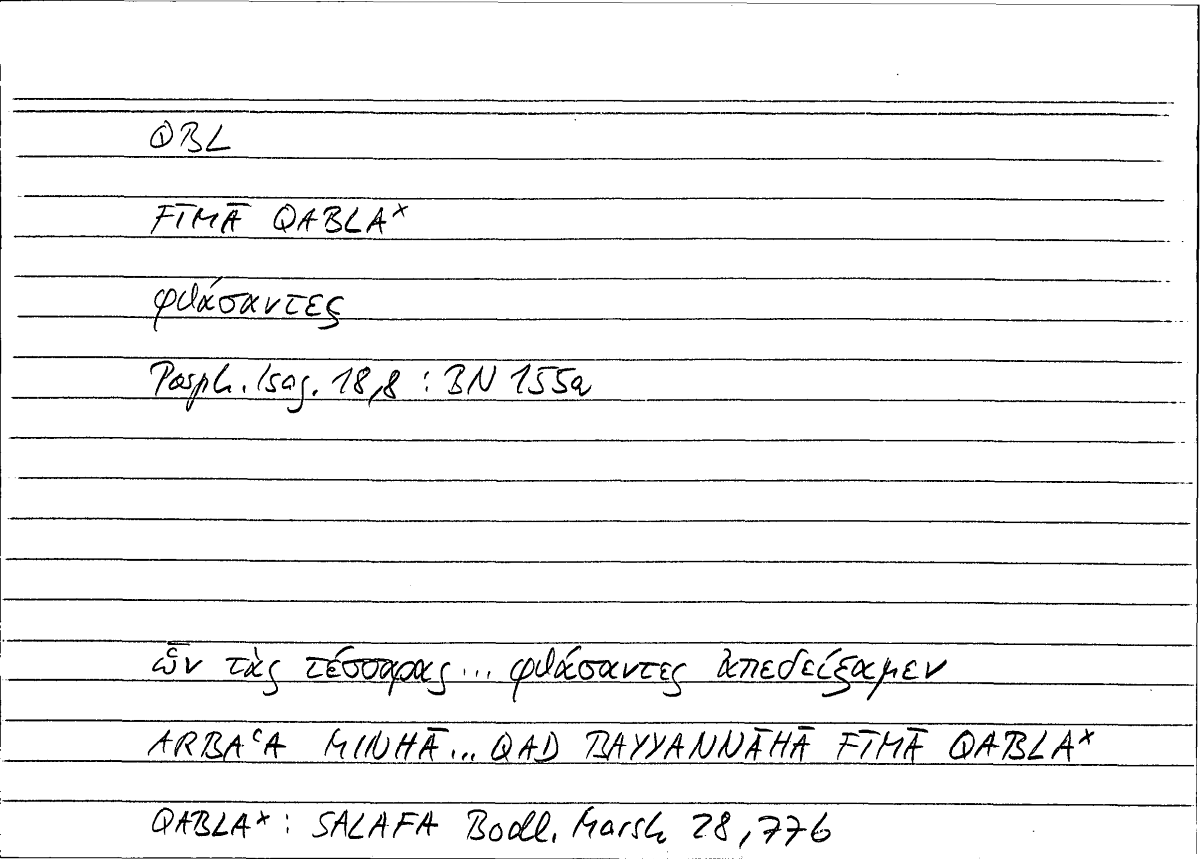 QBL
FĪMĀ QABLAˣ
φθάσαντες
Porph. Isag. 18,8 : BN 155a
ὧν τὰς τέσσαρας ... φθάσαντες ἀπεδείξαμεν
ARBAᶜA MINHĀ ... QAD BAYYANNĀHĀ FĪMĀ QABLAˣ
QABLAˣ : SALAFA Bodl. Marsh 28,77b